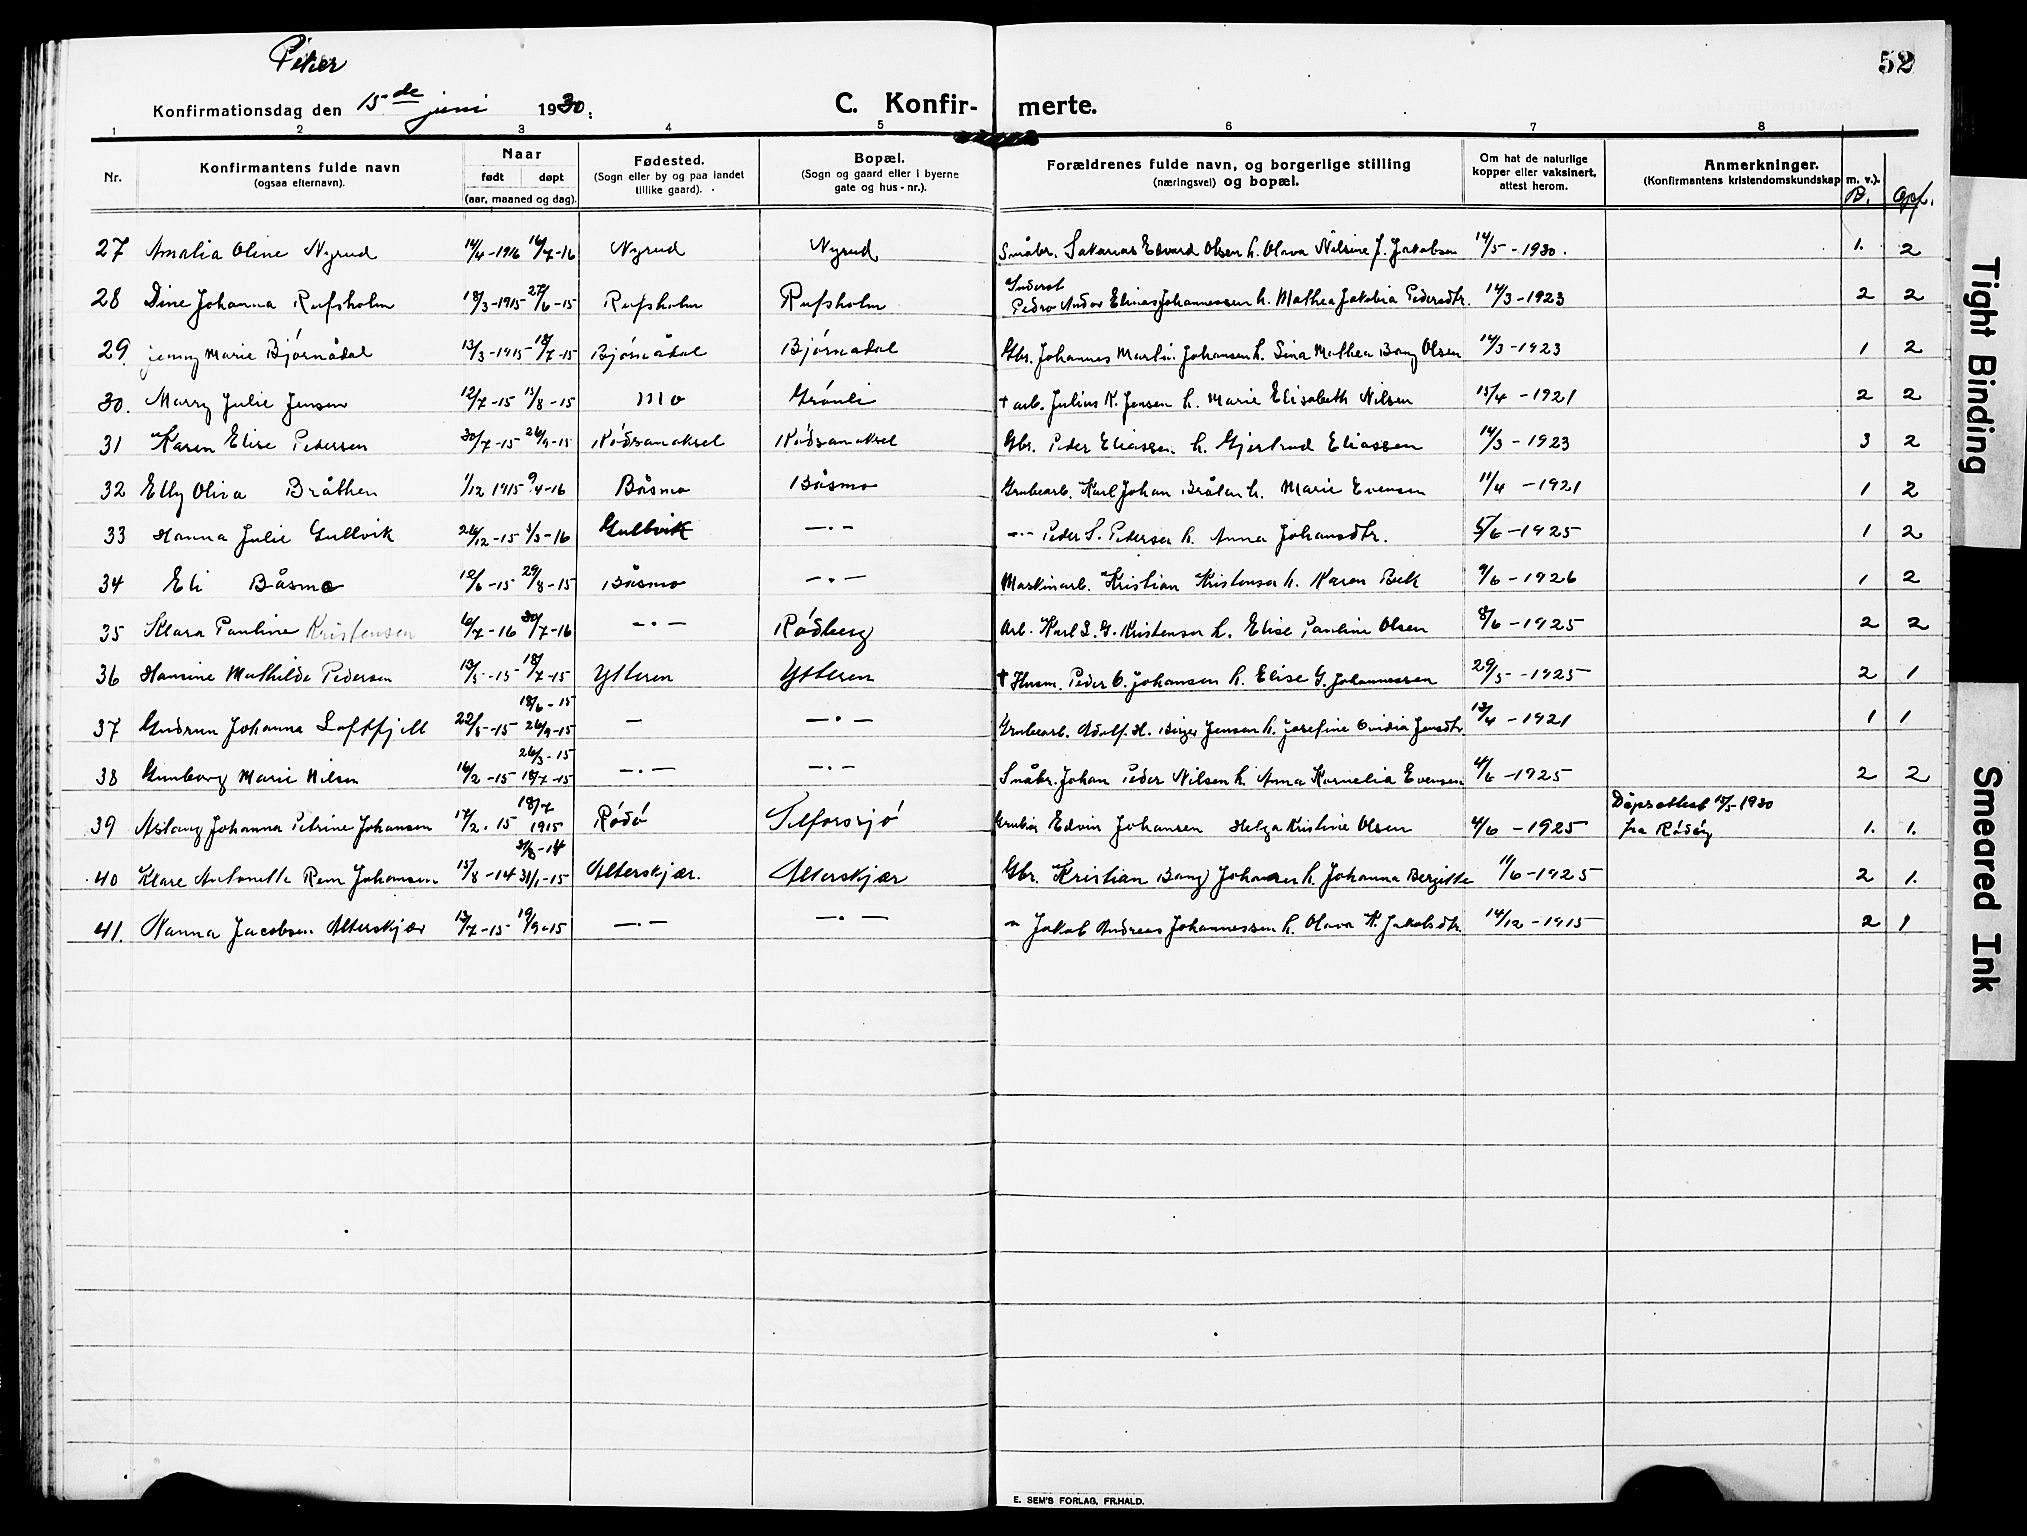 Piker
52
Konfirmationsdag den 15de juni 1930.
C. Konfir- merte.
1 2 3 4 5 6 7 8
Nr. Konfirmantens fulde navn (ogsaa efternavn). Naar født døpt (aar, maaned og dag). Fødested. (Sogn eller by og paa landet tillike gaard). Bopæl. (Sogn og gaard eller i byerne gate og hus-nr.). Forældrenes fulde navn, og borgerlige stilling (næringsvei) og bopæl. Om hat de naturlige kopper eller vaksinert, attest herom. Anmerkninger. (Konfirmantens kristendomskundskap m. v.). B. Opf.
27 Amalia Oline Nyrud 14/4-1916 16/7-16 Nyrud Nyrud Småbr. Sakarias Edvard Olsen h. Olava Nilsine f. Jakobsen 14/5-1930. 1. 2
28 Dine Johanna Rufsholm 18/3-1915 27/6-15 Rufsholm Rufsholm Pedro Andor Elias Johannessen h. Mathea Jakobia Pedersdtr. 14/3-1923 2 2
29. Jenny Marie Bjørnådal 13/3-1915 18/7-15 Bjørnådal Bjørnådal Gbr. Johannes Martin Johansen h. Lina Mathea Bang Olsen 14/3-1923 1 2
30. Marry Julie Jensen 12/7-15 15/8-15 Mo Grønli † arb. Julius K. Jensen h. Marie Elisabeth Nilsen 15/4-1921 2 2
31 Karen Elise Pedersen 30/7-15 26/9-15 Rødsandaksel Rødsandaksel Gbr. Peder Eliassen h. Gjertrud Eliassen 14/3-1923 3 2
32 Elly Oliva Bråthen 1/12 1915 9/4-16 Båsmo Båsmo Grubearb. Karl Johan Bråten h. Marie Evensen 11/4-1921 1 2
33 Hanna Julie Gullvik 26/12-15 5/3-16 Gullvik —"— —"— Peder S. Pedersen h. Anna Johansdtr. 5/6-1925 1 2
34 Eli Båsmo 12/6-15 29/8-15 Båsmo —"— Maskinarb. Kristian Kristensen h. Karen Bek 9/6-1926 1 2
35 Klara Pauline Kristensen 6/7-16 30/7-16 —"— Rødberg Arb. Karl L. G. Kristensen h. Elise Pauline Olsen 8/6-1925 2 2
36 Hansine Mathilde Pedersen 13/5-15 18/7-15 Ytteren Ytteren † Husm. Peder O. Johansen h. Elise G. Johannessen 29/5-1925 2 1
18/6-15
37 Gudrun Johanna Loftfjell 22/5-15 26/9-15 — —"— Grubearb. Adolf H. Birger Jensen h. Josefine Ovidia Jensdtr 13/4-1921 1 1
26/3-15
38 Gunborg Marie Nilsen 16/2-15 18/7-15 —"— —"— Småbr. Johan Peder Nilsen h. Anna Kornelia Evensen 4/6-1925 2 2
18/7 Dåpsattest 15/5-1930
39 Aslaug Johanna Petrine Johansen 17/2-15 1915 Rødø Selforssjø Edvin Johansen Helga Kristine Olsen 4/6-1925 fra Rødøy 1. 1.
31/8-14
40 Klare Antonette Rem Johansen 15/8-14 31/1-15 Alterskjær. Alterskjær Gbr. Kristian Bang Johansen h. Johanna Bergitte 11/6-1925 2 1.
41. Nanna Jacobsen Alterskjær 13/7-15 19/9-15 —"— —"— " Jakob Andreas Johannessen h. Olava K. Jakobsdtr. 14/12-1915 2 1
E. SEM'S FORLAG, FR.HALD.
Tight Binding
Smeared Ink